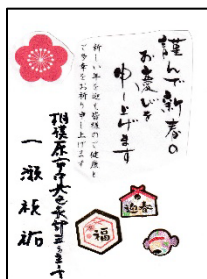 謹んで新春の
お慶びを
申し上げます
新しい年を迎え皆様のご健康と
ご多幸をお祈り申し上げます
相模原市
一瀬
迎春
福